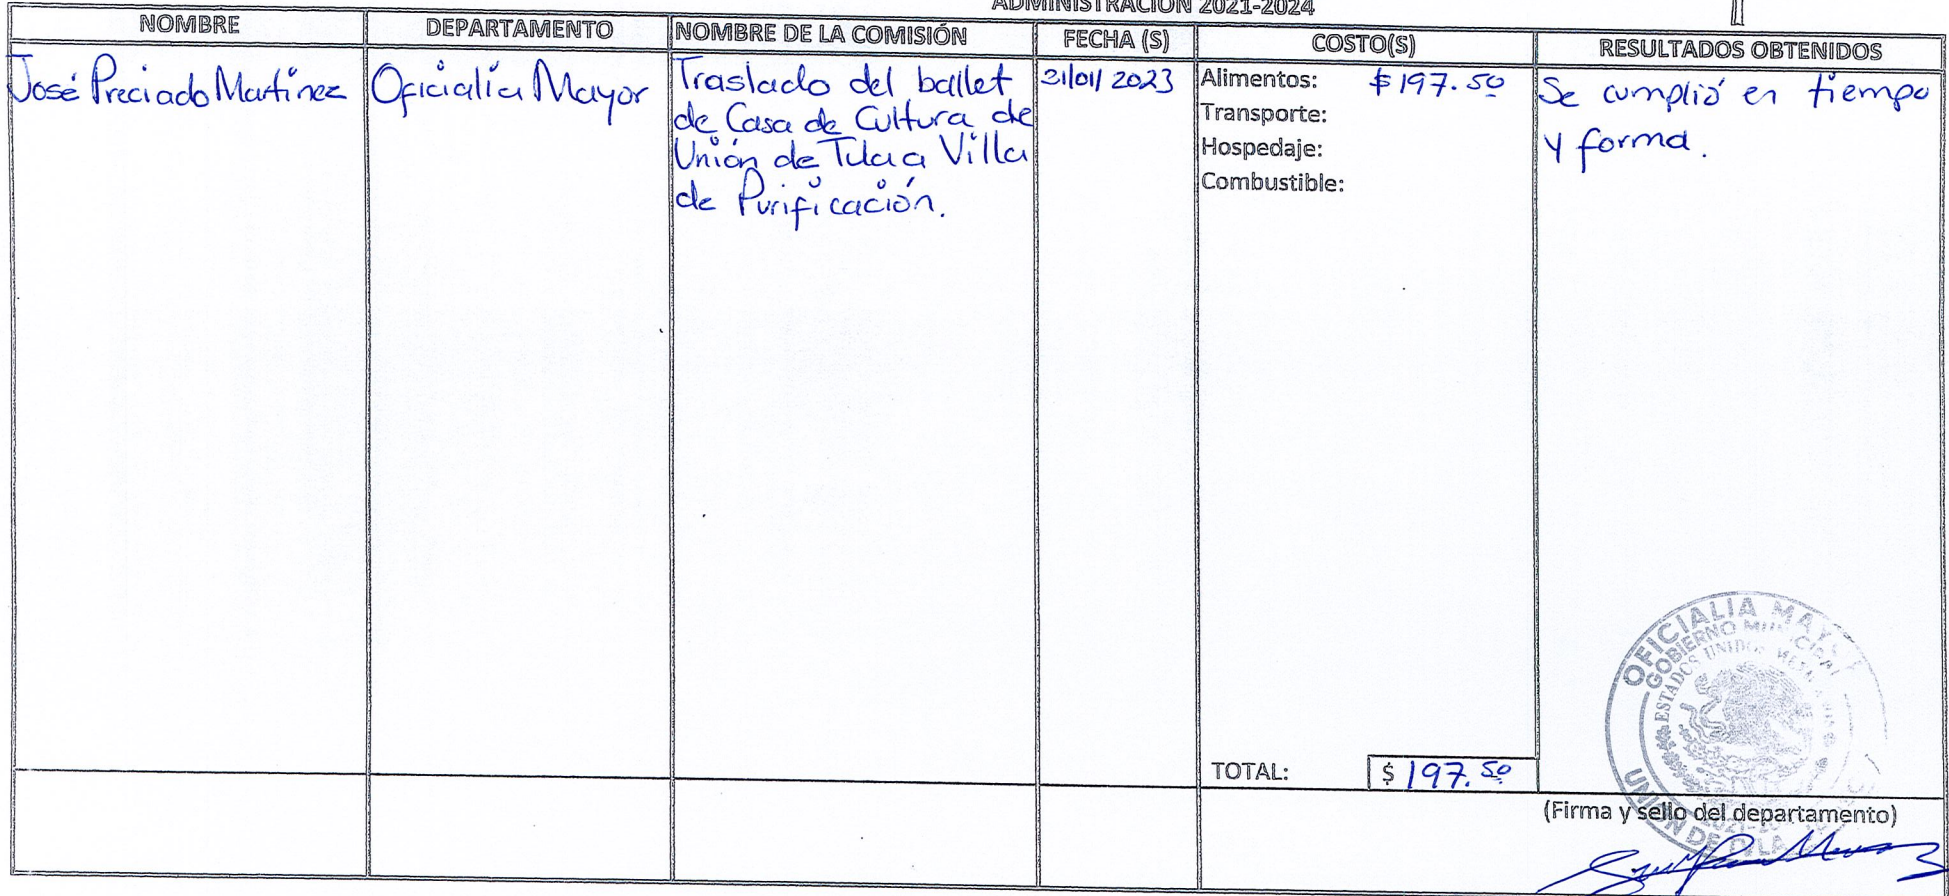 ADMINISTRACIÓN 2021-2024
NOMBRE
DEPARTAMENTO
NOMBRE DE LA COMISIÓN
FECHA (S)
COSTO(S)
RESULTADOS OBTENIDOS
José Preciado Martínez
Oficialía Mayor
Traslado del ballet
de Casa de Cultura de
Unión de Tula a Villa
de Purificación.
31/01/2023
Alimentos: $197.50
Transporte:
Hospedaje:
Combustible:
Se cumplió en tiempo
y forma.
TOTAL: $197.50
OFICIALIA MAYOR
GOBIERNO MUNICIPAL
ESTADOS UNIDOS MEXICANOS
UNIÓN DE TULA
(Firma y sello del departamento)